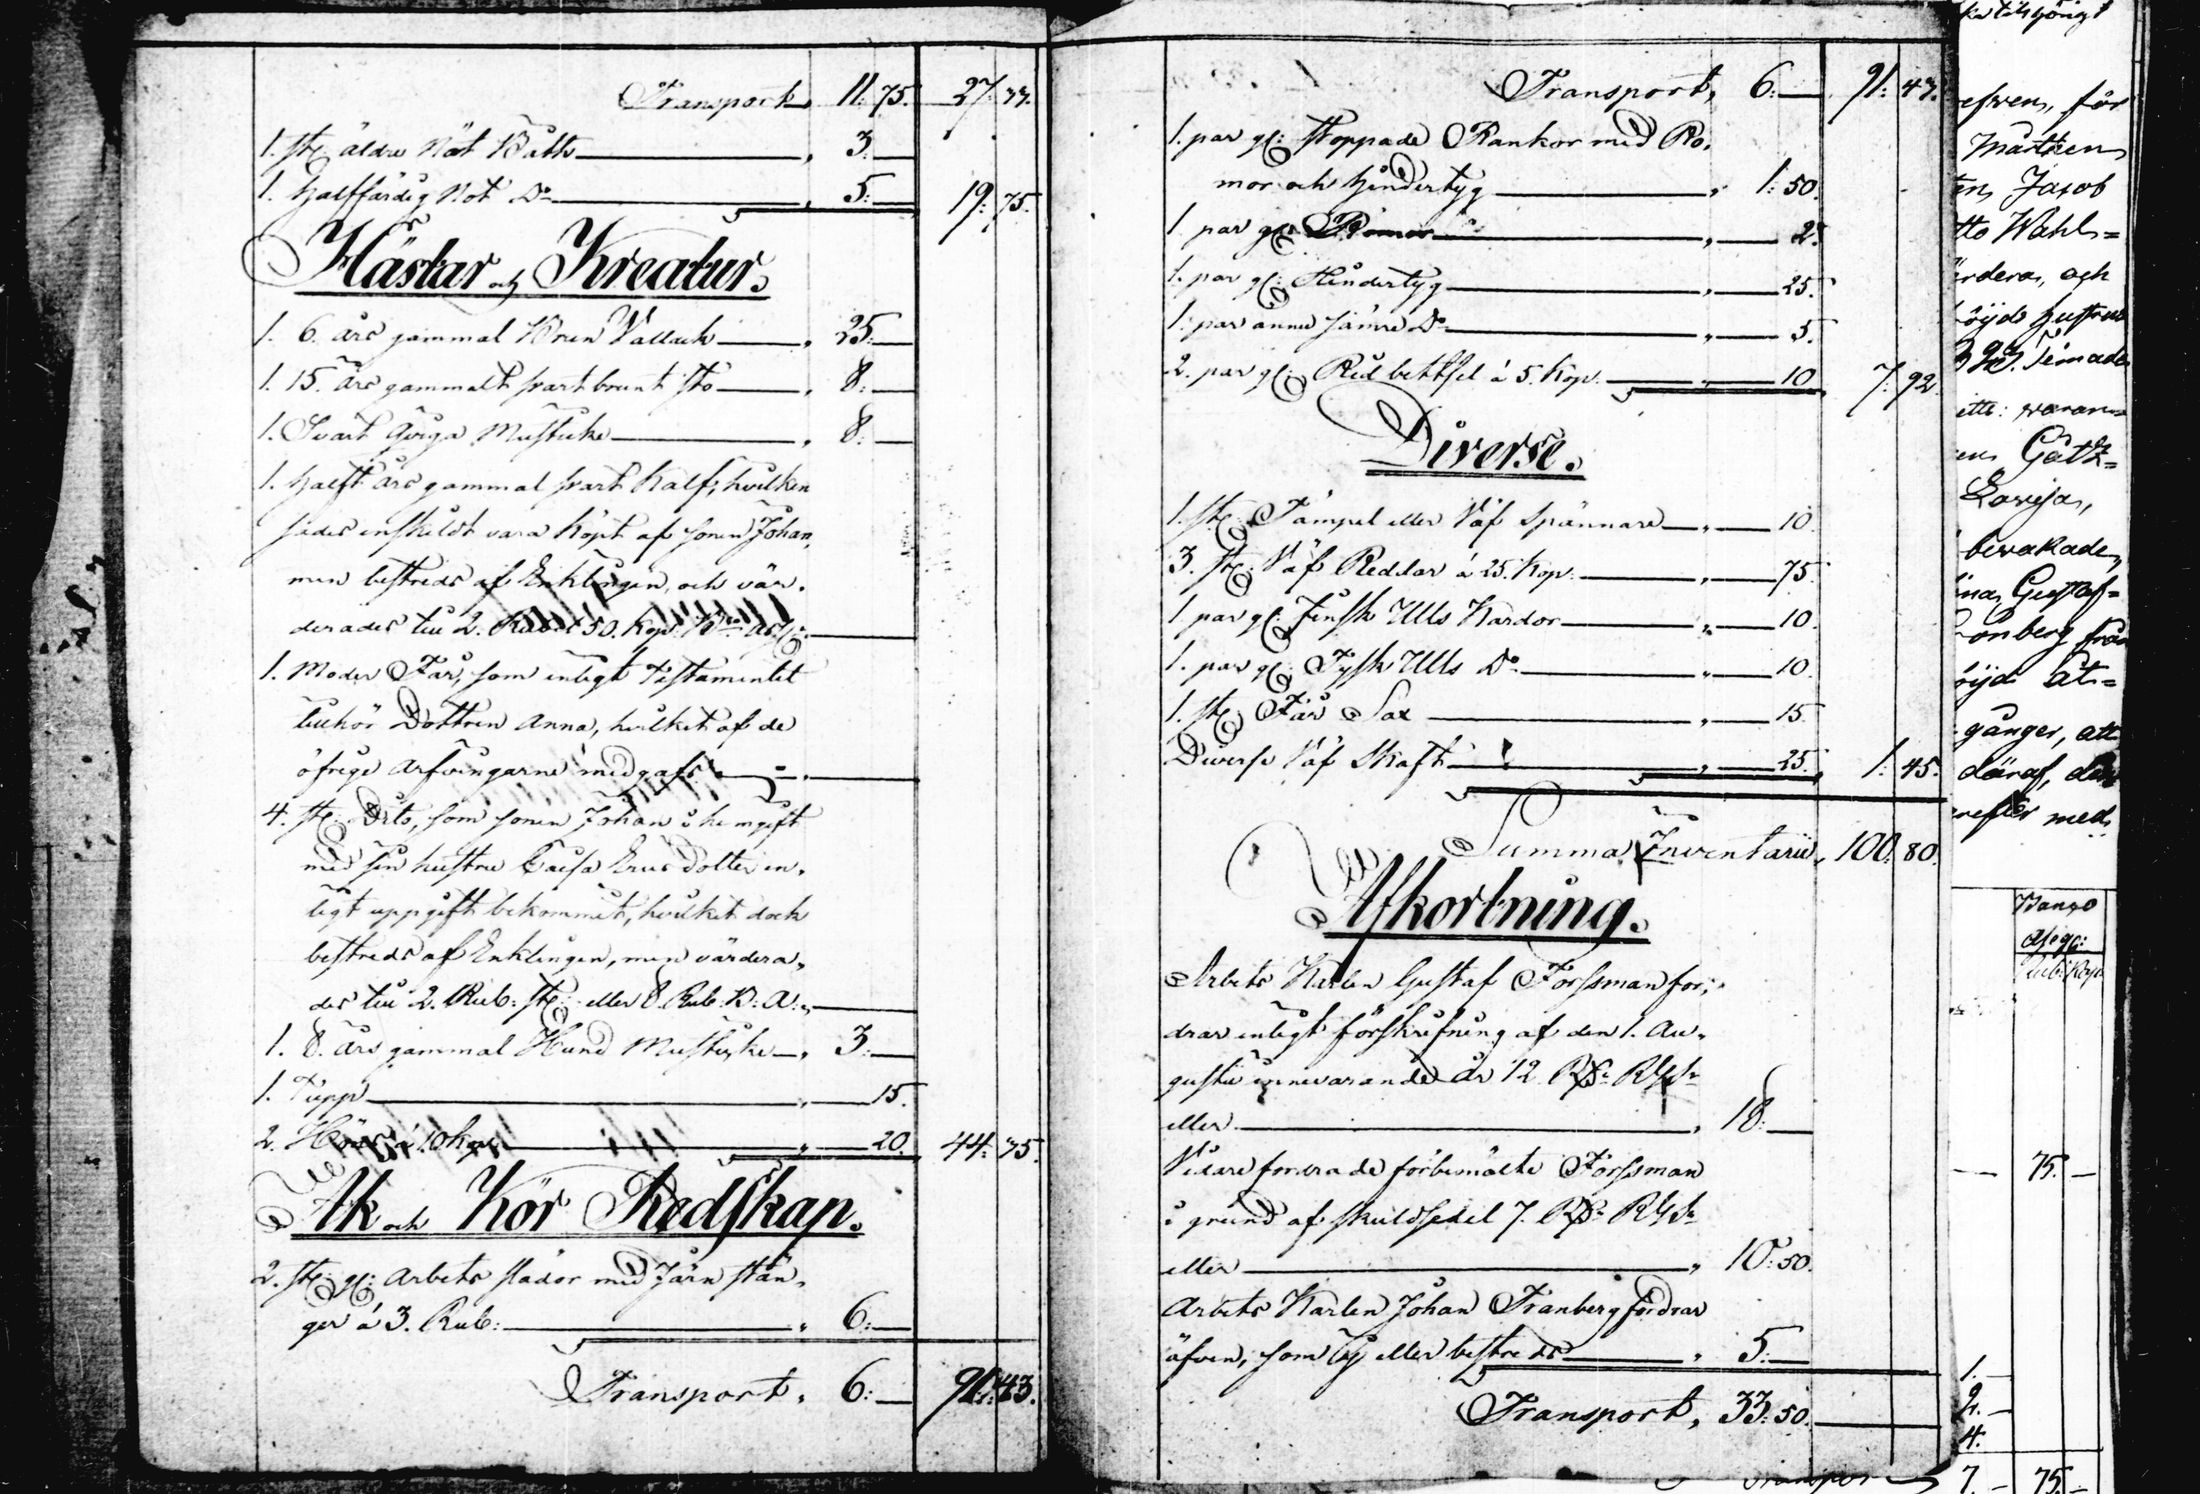 Transport, 11: 75. 27: 77.
1. st. äldre Nöt Båth 3:
1. halffärdig Not Do 5: 19: 75.
Hästar och Kreatur.
1. 6. års gammal Brun Vallach 25:
1. 15. års gammalt svart brunt Sto 8:
1. Svart Qviga 8:
1. halft års gammal svart Kalf, hvilken
sades enskildt vara köpt af sonen Johan,
men bestreds af Enklingen, och vär-
derades till 2. Rubel 50. Kop.
1. Moder Får, som enligt Testamentet
tillhör Dottren Anna, hvilket af de
öfrige arfvingarne medgafs
4. st. Dito, som sonen Johan i hemgift
med sin hustru Caisa Ericsdotter en-
ligt uppgift bekommit, hvilket dock
bestreds af Enklingen, men värdera-
des till 2. Rub: st. eller 8. Rub. B: A:
1. 8. års gammal Hund 3:
1. Tupp 15.
2. Höns á 10 kop. 20. 44: 75.
Åk och Kör Redskap.
2. st. gl: Arbets slädor med Järn stän-
ger á 3. Rub: 6:
Transport, 6: 91: 43.
Transport, 6: 91: 47.
1. par gl: stoppade Rankor med Rö-
mor och hindertyg 1: 50.
1. par gl: Römor 2.
1. par gl: Hindertyg 25.
1. par annu sämre Do 5.
2. par gl: Rid bettsel á 5. Kop. 10 7: 92.
Diverse.
1. st. Tämpel eller Väf Spännare 10.
3. st. Väf Redslar á 25. Kop: 75.
1 par gl: Finsk Ulls Kardor 10.
1. par gl: Tysk Ulls Do 10.
1. st. Får Sax 15.
Diverse Väf Skaft 25. 1: 45.
Summa Inventarii, 100: 80.
Afkortning.
Arbets Karlen Gustaf Forssman for-
drar enligt förskrifning af den 1. Au-
gusti innevarande år 12
eller 18:
Vidare fordrade förbemälte Forssman
i grund af skuldsedel 7.
eller 10: 50.
Arbets Karlen Johan Franberg fordrar
äfven, som ej eller bestreds 5:
Transport, 33: 50.
för
Mårten
Jacob
Wahl=
och
Gustaf=
från
åt=
gånger, att
däraf, den
med
Banco
75.
1.
2.
4.
7. 75.